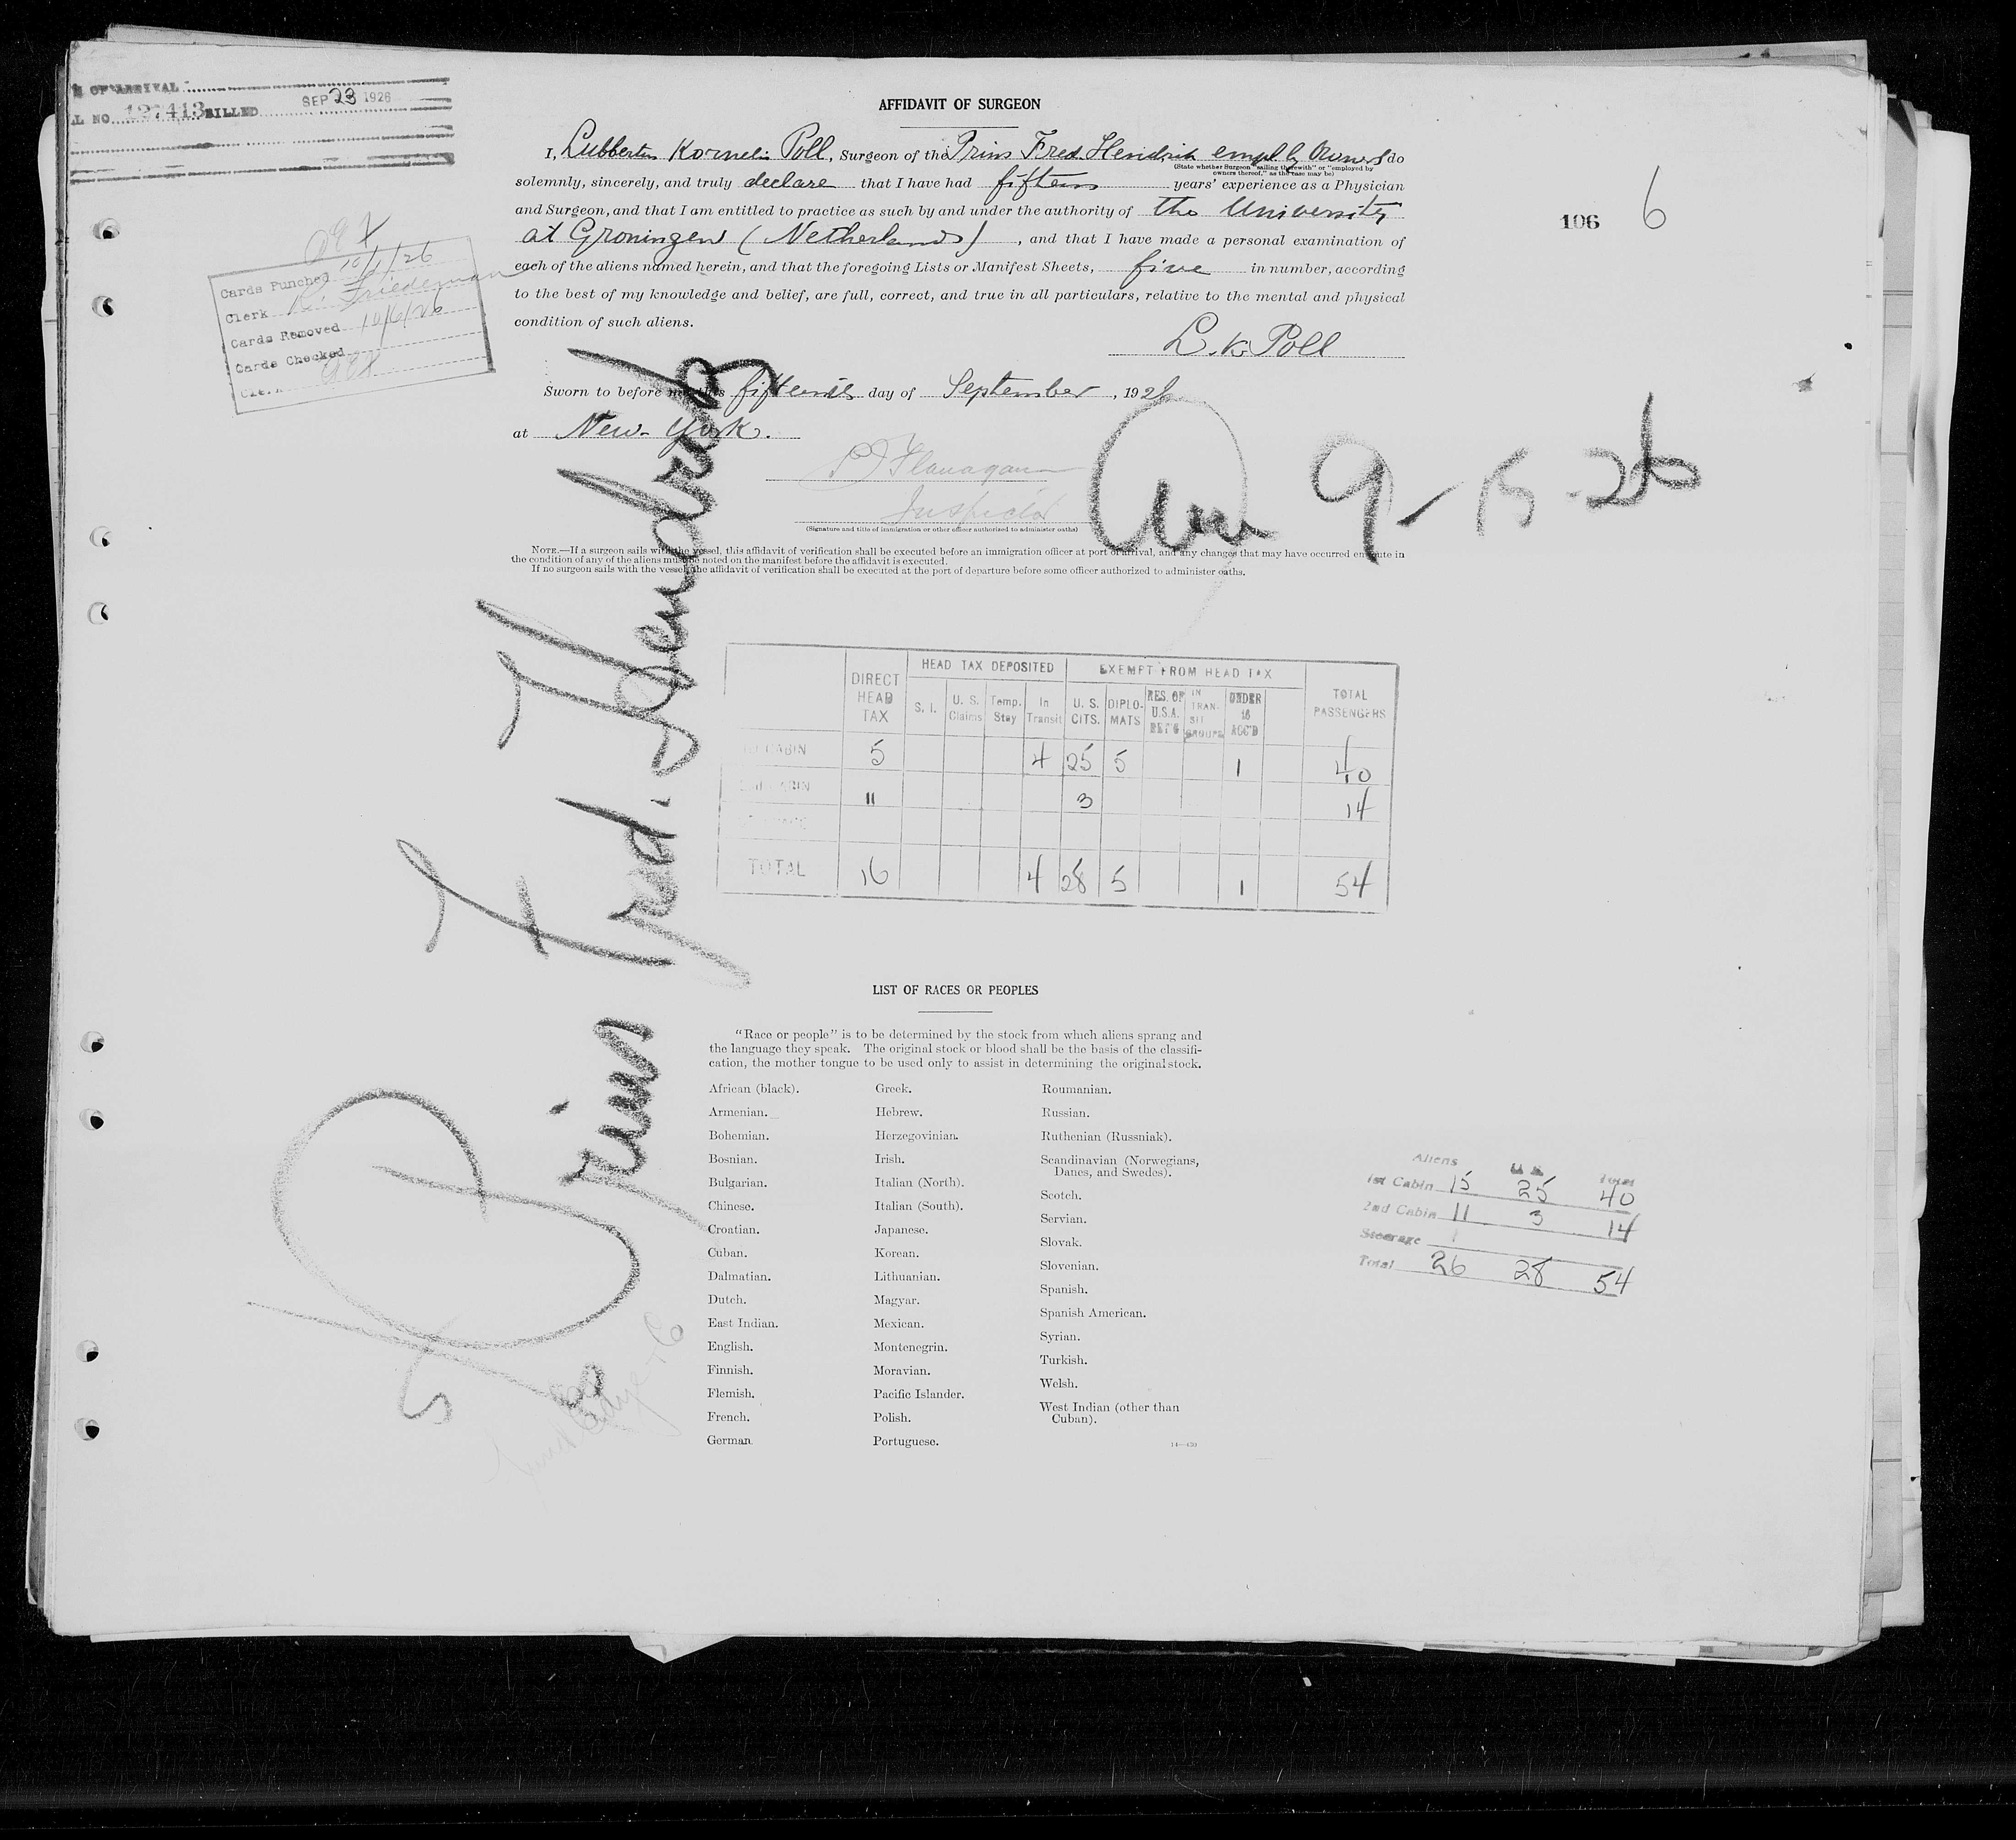 OF ARRIVAL
L NO. 127413 BILLED SEP 23 1926
AFFIDAVIT OF SURGEON
I, Lubbertus Kornelis Poll, Surgeon of the Prins Fred. Hendrik empl. by Owners do
(State whether Surgeon "sailing therewith" or "employed by
owners thereof," as the case may be)
solemnly, sincerely, and truly declare that I have had fifteen years' experience as a Physician
and Surgeon, and that I am entitled to practice as such by and under the authority of the University
at Groningen (Netherlands), and that I have made a personal examination of
each of the aliens named herein, and that the foregoing Lists or Manifest Sheets, five in number, according
to the best of my knowledge and belief, are full, correct, and true in all particulars, relative to the mental and physical
condition of such aliens.
L. K. Poll
Sworn to before me this fifteenth day of September, 1926
at New-York.
Flanagan
Inspector
(Signature and title of immigration or other officer authorized to administer oaths)
NOTE.—If a surgeon sails with the vessel, this affidavit of verification shall be executed before an immigration officer at port of arrival, and any changes that may have occurred en route in
the condition of any of the aliens must be noted on the manifest before the affidavit is executed.
If no surgeon sails with the vessel, the affidavit of verification shall be executed at the port of departure before some officer authorized to administer oaths.
106 6
Cards Punched 10/1/26
Clerk R. Friedeman
Cards Removed 10/6/26
Cards Checked
Clerk
Arr 9-15-26
S/S Prins Fred. Hendrik
DIRECT HEAD TAX
HEAD TAX DEPOSITED
S. I.
U. S. Claims
Temp. Stay
In Transit
EXEMPT FROM HEAD TAX
U. S. CITS.
DIPLO- MATS
RES. OF U.S.A. RET'G
IN TRAN- SIT GROUPS
UNDER 16 ACC'D
TOTAL PASSENGERS
1ST CABIN 5 4 25 5 1 40
2ND CABIN 11 3 14
TOTAL 16 4 28 5 1 54
LIST OF RACES OR PEOPLES
"Race or people" is to be determined by the stock from which aliens sprang and
the language they speak. The original stock or blood shall be the basis of the classifi-
cation, the mother tongue to be used only to assist in determining the original stock.
African (black).
Armenian.
Bohemian.
Bosnian.
Bulgarian.
Chinese.
Croatian.
Cuban.
Dalmatian.
Dutch.
East Indian.
English.
Finnish.
Flemish.
French.
German.
Greek.
Hebrew.
Herzegovinian.
Irish.
Italian (North).
Italian (South).
Japanese.
Korean.
Lithuanian.
Magyar.
Mexican.
Montenegrin.
Moravian.
Pacific Islander.
Polish.
Portuguese.
Roumanian.
Russian.
Ruthenian (Russniak).
Scandinavian (Norwegians,
Danes, and Swedes).
Scotch.
Servian.
Slovak.
Slovenian.
Spanish.
Spanish American.
Syrian.
Turkish.
Welsh.
West Indian (other than
Cuban).
14—430
Aliens U S Total
1st Cabin 15 25 40
2nd Cabin 11 3 14
Steerage
Total 26 28 54